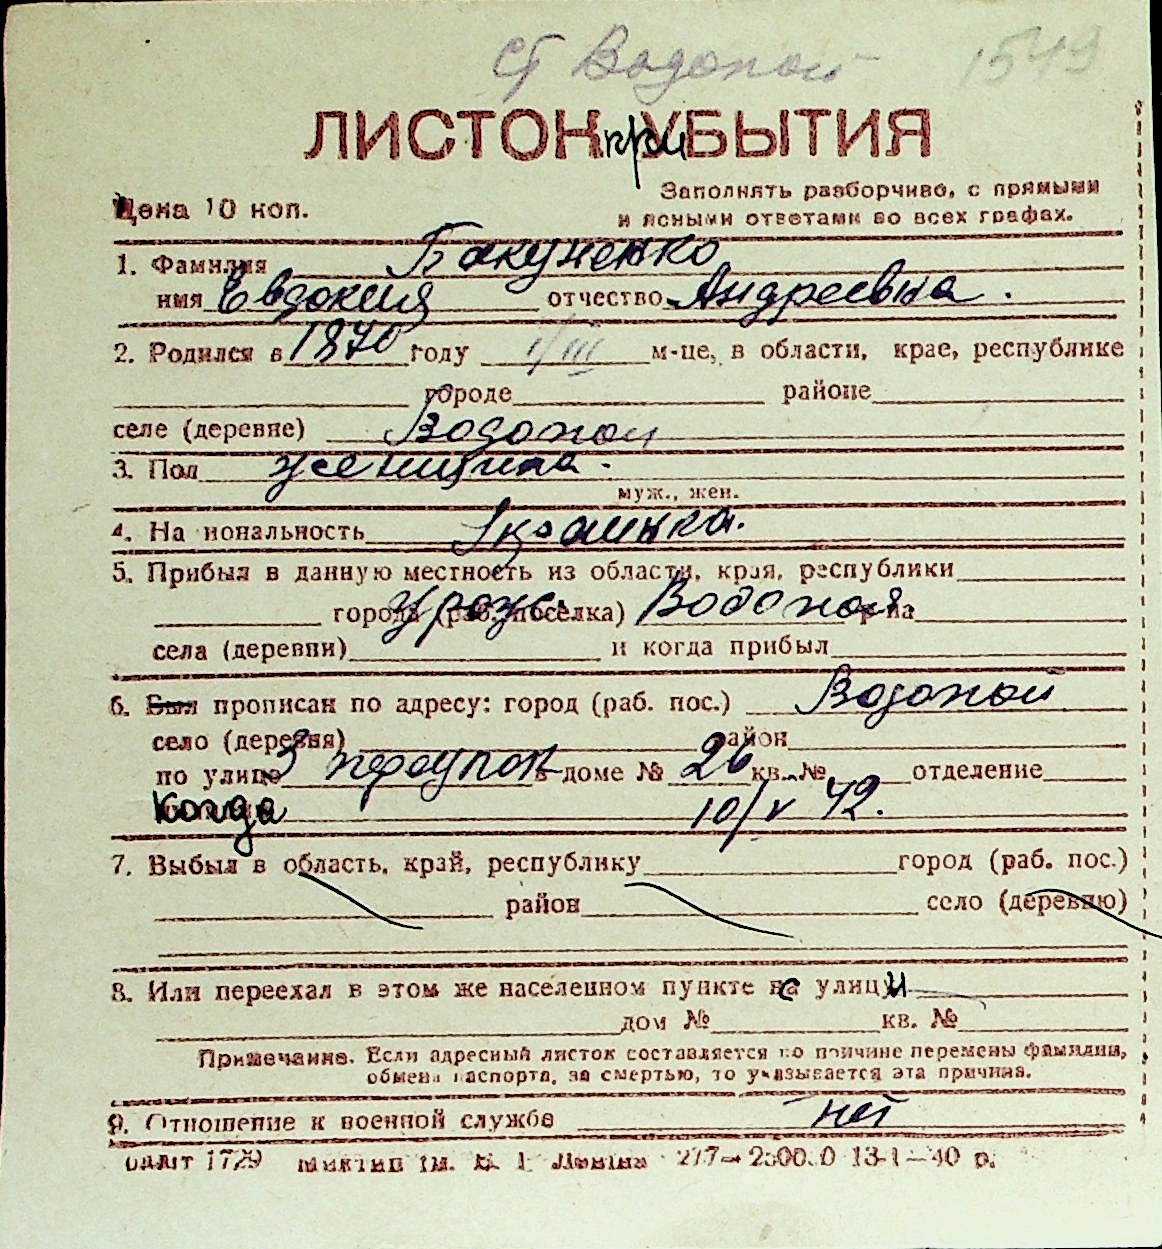 ст Водопой 1549
ЛИСТОК при УБЫТИЯ
Цена 10 коп.
Заполнять разборчиво, с прямыми
и ясными ответами во всех графах.
1. Фамилия Бакуменко
имя Евдокия отчество Андреевна.
2. Родился в 1870 году 1/III м-це, в области, крае, республике
городе районе
селе (деревне) Водопой
3. Пол женщина.
муж., жен.
4. Национальность Украинка.
5. Прибыл в данную местность из области, края, республики
города (раб. поселка) Водопой р-на
села (деревни) и когда прибыл
6. Был прописан по адресу: город (раб. пос.) Водопой
село (деревня) район
по улице 3 в доме № 26 кв. № отделение
Когда 10/V 42.
7. Выбыл в область, край, республику город (раб. пос.)
район село (деревню)
8. Или переехал в этом же населенном пункте с улицы
дом № кв. №
Примечание. Если адресный листок составляется по причине перемены фамилии,
обмена паспорта, за смертью, то указывается эта причина.
9. Отношение к военной службе нет
1729 13-1-40 р.